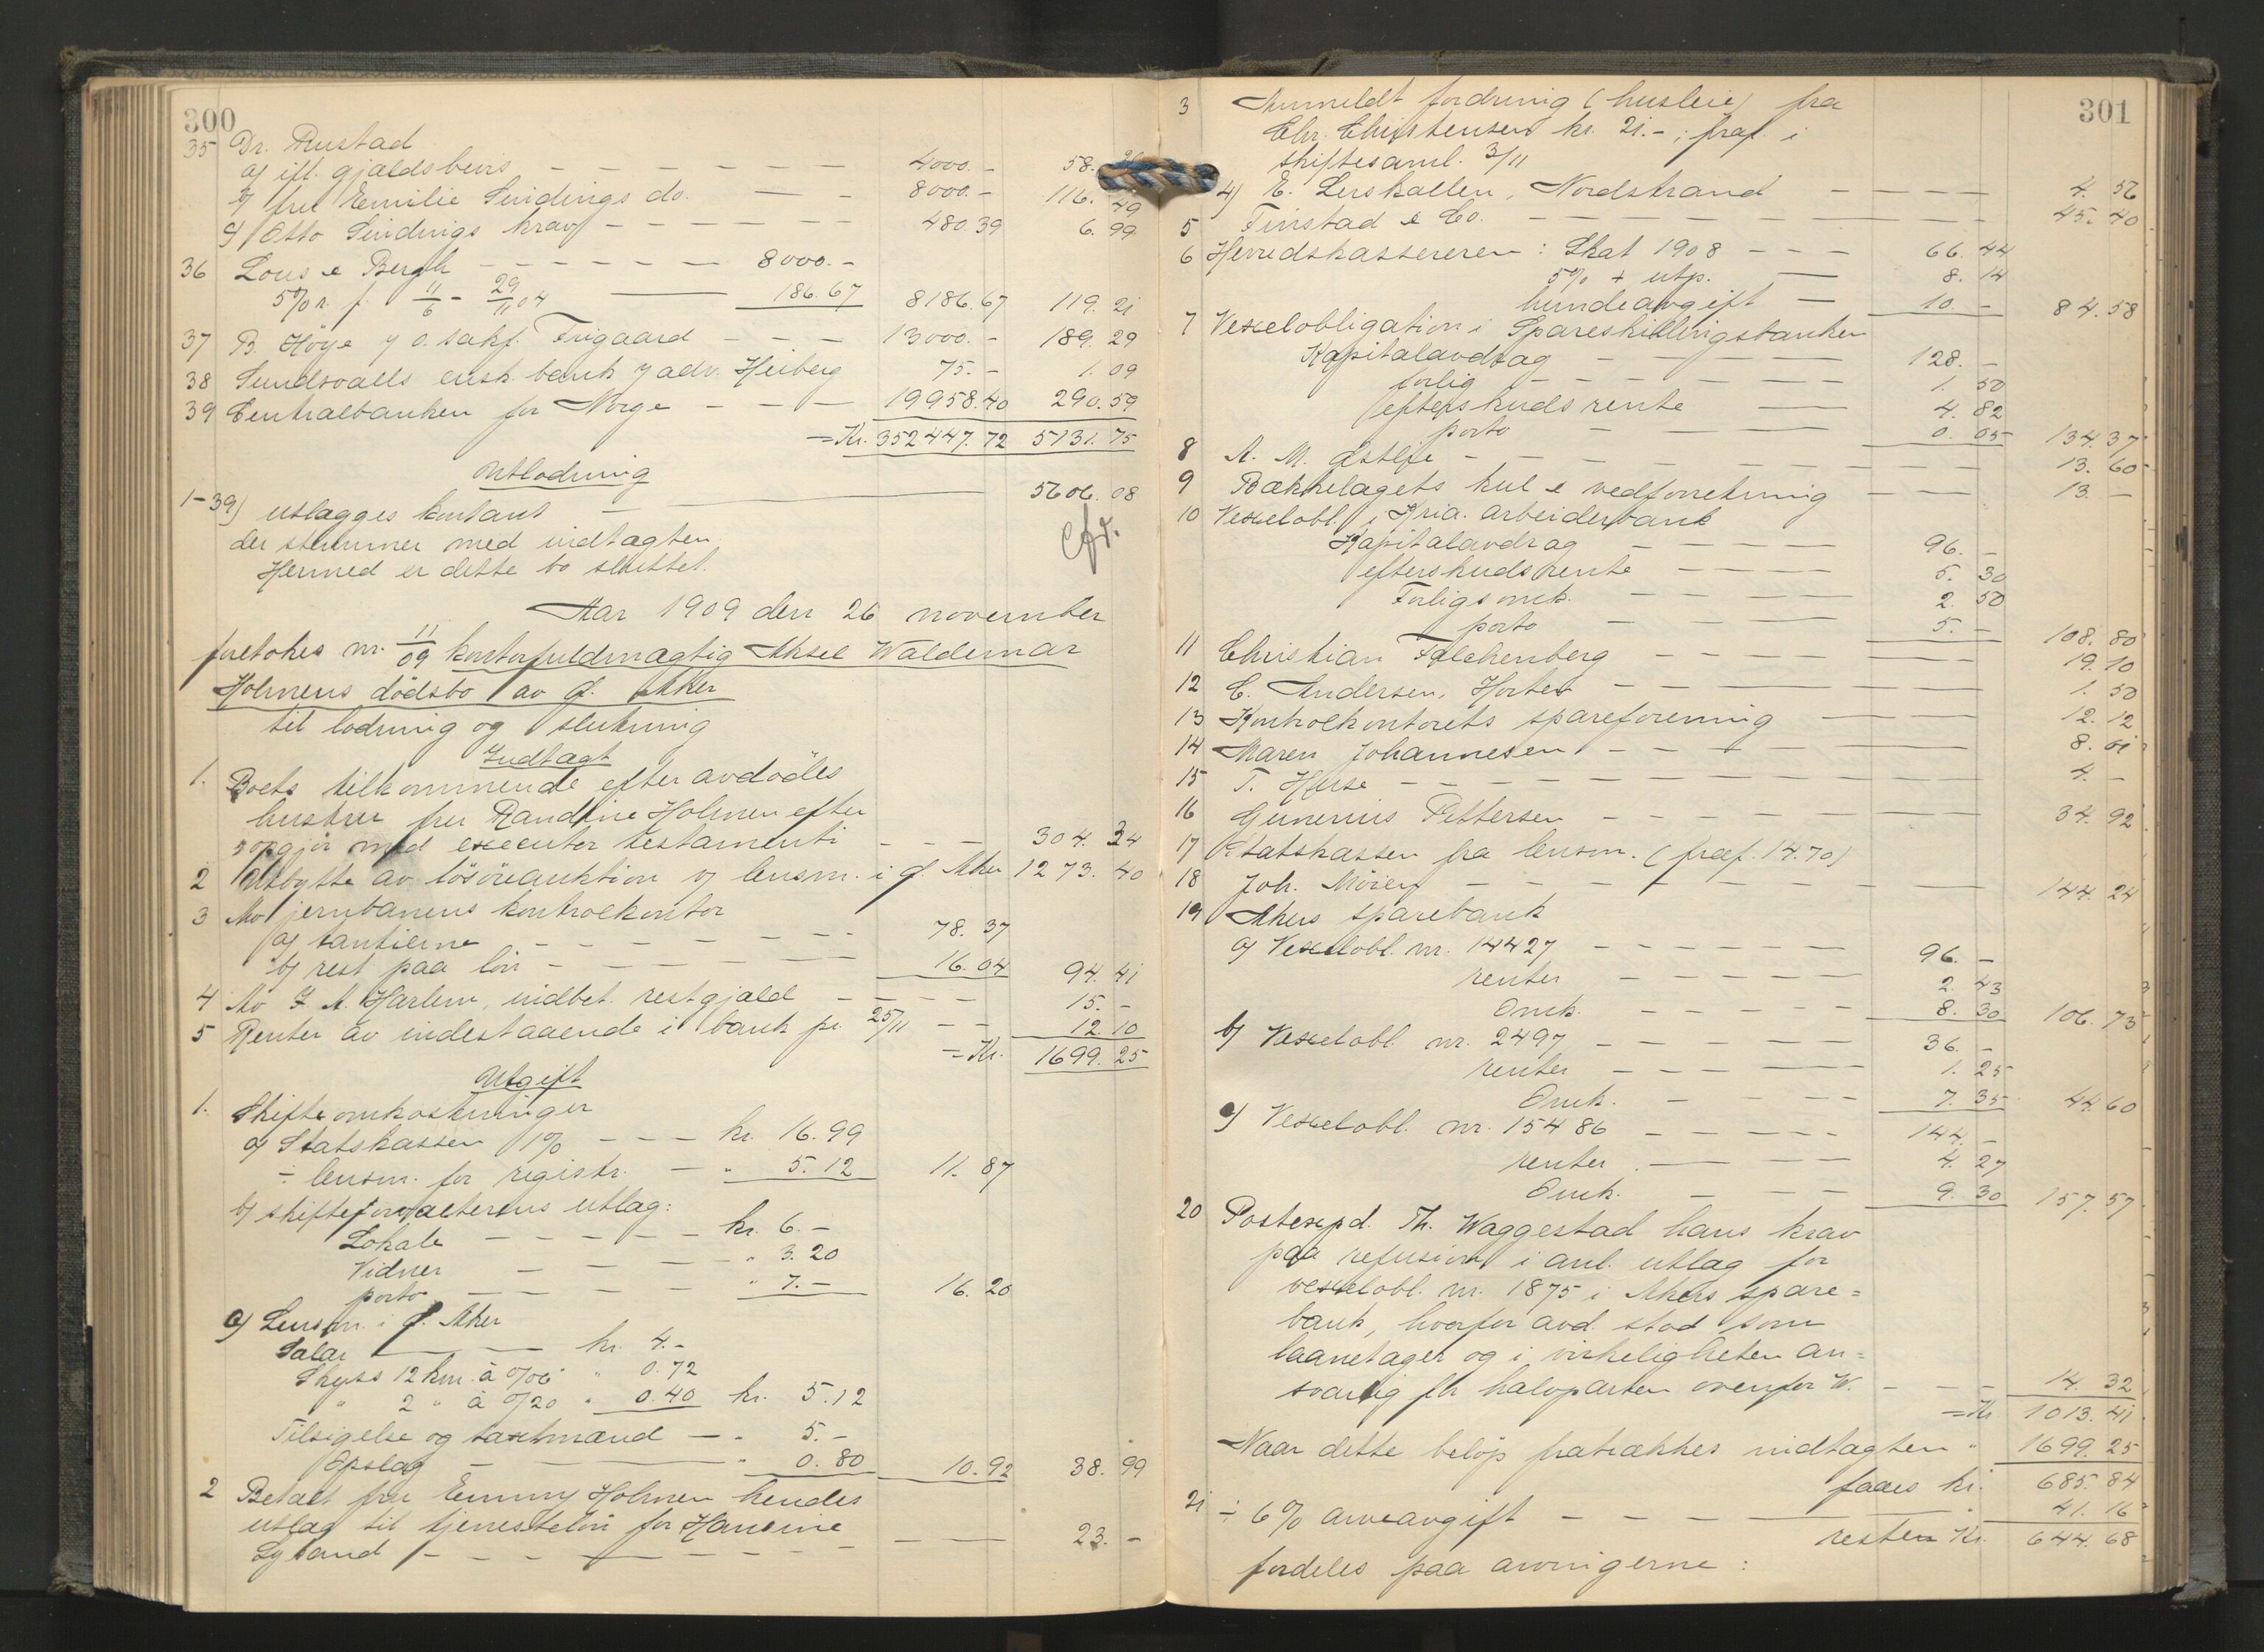 300
35 Dr. Rustad
a) ifl. gjældsbevis — 4000.- 58.
b) fru Emilie Sindings do. — 8000.- 116. 49
c) Otto Sindings krav — 480.39 6.99
36 Lous & Bergh — 8000.-
5% r. f. 11/6 - 29/11 04 — 186.67 8186.67 119.21
37 B. Höye v/ o.sakf. Frigaard — 13000.- 189.29
38 Sundsvalls ensk. bank v/ adv. Heiberg 75.- 1.09
39 Centralbanken for Norge — 19958.40 290.59
= Kr. 352447.72 5131.75
Utlodning
1-39) utlægges kontant — 5606.08
der stemmer med indtægten.
Hermed er dette bo sluttet.
Aar 1909 den 26 november
foretokes nr. 11/09 kontorfuldmægtig Aksel Waldemar
Holmens dödsbo av Ø. Aker
til lodning og slutning
Indtægt
1. Boets tilkommende efter avdödes
hustru fru Randine Holmen efter
opgjör med executor testamenti — 304.34
2 Utbytte av lösöreauktion v/ lensm. i Ø. Aker 1273.40
3 Av jernbanens kontrolkontor
a) tantieme — 78.37
b) rest paa lön — 16.04 94.41
4 Av I. A. Harlem, indbet. restgjæld — 15.-
5 Renter av indestaaende i bank pr. 25/11 — 12.10
= Kr. 1699.25
Utgift
1. Skifteomkostninger
a) Statskassen 1% — kr. 16.99
÷ lensm. for registr. — " 5.12 11.87
b) skifteforvalterens utlæg:
Lokale — kr. 6.-
Vidner — " 3.20
porto — " 7.- 16.20
c) Lensm. i Ø. Aker
Salær — kr. 4.-
Skyss 12 km. à 0/06 " 0.72
" 2 " à 0/20 " 0.40 kr. 5.12
Tilsigelse og takstmænd — " 5.-
Opslag — " 0.80 10.92 38.99
2 Betalt fru Emmy Holmen hendes
utlæg til tjenestelön for
— 23.-
301
3 Anmeldt fordring (husleie) fra
Chr. Christensen kr. 21.-; fraf. i
skiftesaml. 3/11
4) E. Lerskallen, Nordstrand — 4.56
5 Finstad & Co. — 45.40
6 Herredskassereren: Skat 1908 — 66.44
5% + utp. — 8.14
hundeavgift — 10.- 84.58
7 Vexelobligation i Spareskillingsbanken
Kapitalavdrag — 128.-
forlig — 1.50
efterskudsrente — 4.82
porto — 0.05 134.37
8 A. M. Østlie — 13.60
9 Bækkelagets kul & vedforretning — 13.-
10 Vexelobl. i Kria. arbeiderbank
Kapitalavdrag — 96.-
efterskudsrente — 5.30
Forligsomk. — 2.50
porto — 5.- 108.80
11 Christian Falchenberg — 19.10
12 C. Andersen, Horten — 1.50
13 Kontrolkontorets spareforening — 12.12
14 Maren Johannesen — 8.01
15 T. Huse — 4.-
16 Gunerius Pettersen — 34.92
17 Statskassen fra lensm. (fraf. 14.70)
18 Joh. Möien — 144.24
19 Akers sparebank
a) Vexelobl. nr. 14427 — 96.-
renter — 2.43
Omk. — 8.30 106.73
b) Vexelobl. nr. 2497 — 36.-
renter — 1.25
Omk. — 7.35 44.60
c) Vexelobl. nr. 15486 — 144.-
renter — 4.27
Omk. — 9.30 157.57
20 Postexpd. Th. Waggestad hans krav
paa refusion i anl. utlæg for
vexelobl. nr. 1875 i Akers spare=
bank, hvorfor avd. stod som
laanetager og i virkeligheten an=
svarlig for halvparten overfor W. — 14.32
= Kr 1013.41
Naar dette beløp fratrækkes indtægten " 1699.25
faaes kr. 685.84
21 ÷ 6% arveavgift — " 41.16
resten Kr. 644.68
fordeles paa arvingerne: